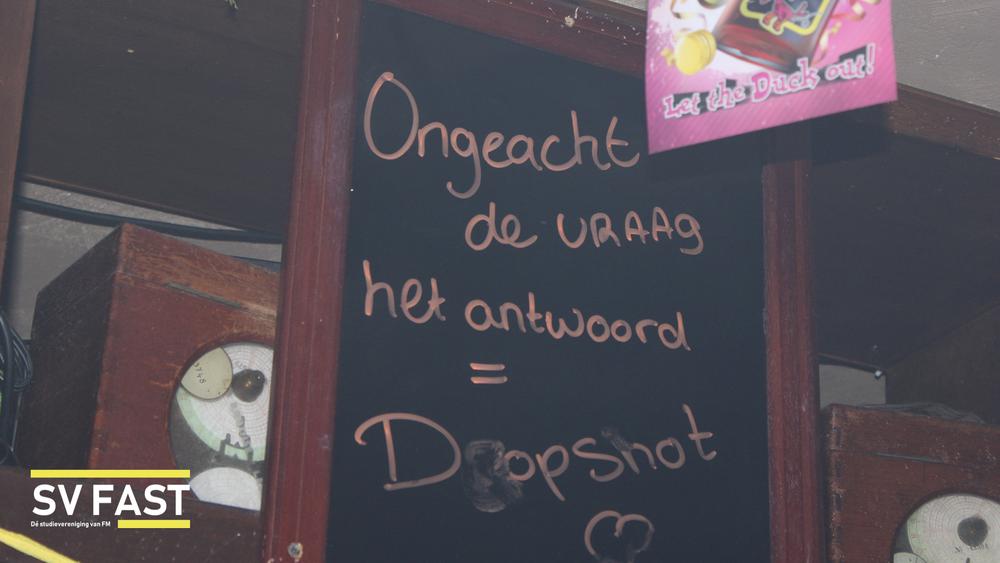 Let the Duck out!
Ongeacht
de VRAAg
het antwoord
=
Dropshot
SV FAST
Dé studievereniging van FM